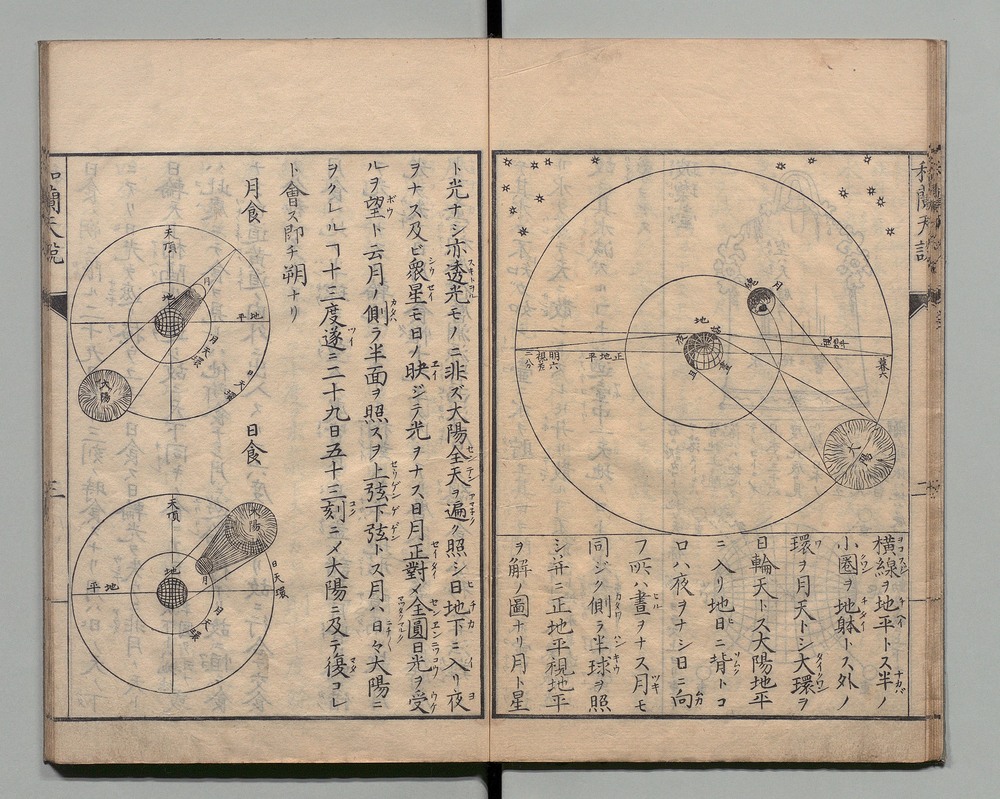 和蘭天説
地
月
暮六
正地平
明六
視差
二分
太陽
横線ヲ地平トス半ノ
小圏ヲ地躰トス外ノ
環ヲ月天トシ大環ヲ
日輪天トス大陽地平
ニ入リ地日ニ背トコ
ロハ夜ヲナシ日ニ向
フ所ハ晝ヲナス月モ
同ジク側ラ半球ヲ照
シ并ニ正地平視地平
ヲ解ノ圖ナリ月ト星
ト光ナシ亦透光モノニ非ズ大陽全天ヲ遍ク照シ日地下ニ入リ夜
ヲナス及ビ衆星モ日ノ映ジテ光ヲナス日月正對メ全圓日光ヲ受
ルヲ望ト云月ノ側ラ半面ヲ照スヲ上弦下弦トス月ハ日々大陽ニ
ヲクレルヿ十三度遂ニ二十九日五十三刻ニメ大陽ニ及テ復コレ
ト會ス即チ朔ナリ
月食
天頂
地
地平
月
月天環
日天環
太陽
日食
天頂
地
地平
月
月天環
日天環
太陽
和蘭天説